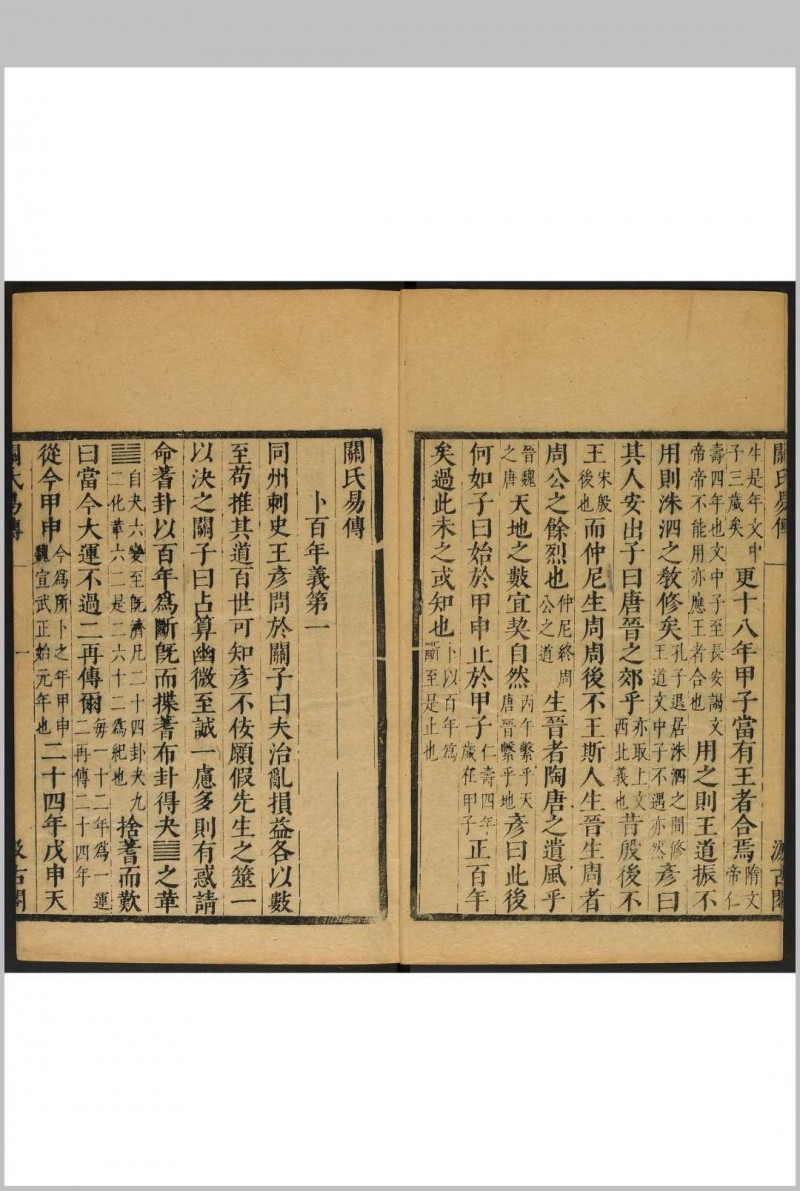 關氏易傳 汲古閣
生是年文中子三歲矣更十八年甲子當有王者合焉隋文帝仁
壽四年也文中子至長安謁文帝帝不能用亦應王者合也用之則王道振不
用則洙泗之教修矣孔子退居洙泗之間修王道文中子不遇亦然彥曰
其人安出子曰唐晉之郊乎亦取上文西北義也昔殷後不
王宋殷後也而仲尼生周周後不王斯人生晉生周者
周公之餘烈也仲尼終周公之道生晉者陶唐之遺風乎
晉魏之唐天地之數宜契自然丙午繫乎天唐晉繫乎地彥曰此後
何如子曰始於甲申止於甲子仁壽四年歲在甲子正百年
矣過此未之或知也卜以百年爲斷至是止也
關氏易傳
卜百年義第一
同州刺史王彥問於關子曰夫治亂損益各以數
至苟推其道百世可知彥不佞願假先生之筮一
以決之關子曰占算幽微至誠一慮多則有惑請
命蓍卦以百年爲斷旣而揲蓍布卦得夬䷪之革
䷰自夬六變至旣濟凡二十四卦夬九二化革六二是二六十二爲紀也捨蓍而歎
曰當今大運不過二再傳爾每一十二年爲一運二再傳二十四年
從今甲申今爲所卜之年甲申魏宣武正始元年也二十四年戊申天
關氏易傳 一 汲古閣